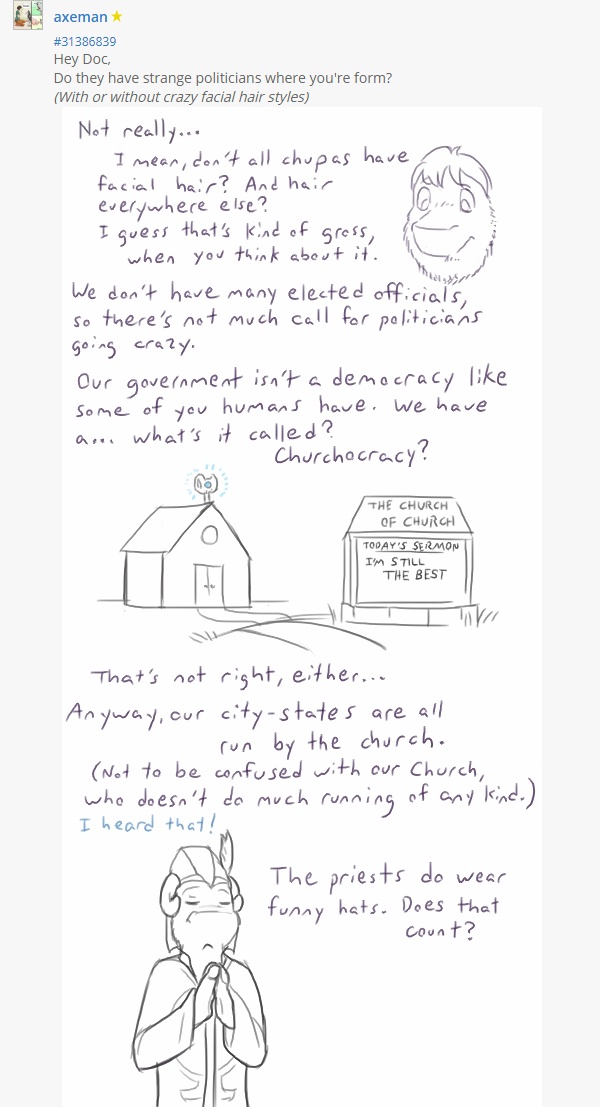 axeman
#31386839
Hey Doc,
Do they have strange politicians where you're form?
(With or without crazy facial hair styles)
Not really...
I mean, don't all chupas have
facial hair? And hair
everywhere else?
I guess that's kind of gross,
when you think about it.
We don't have many elected officials,
so there's not much call for politicians
going crazy.
Our government isn't a democracy like
some of you humans have. We have
a... what's it called?
Churchocracy?
THE CHURCH
OF CHURCH
TODAY'S SERMON
I'M STILL
THE BEST
That's not right, either...
Anyway, our city-states are all
run by the church.
(Not to be confused with our Church,
who doesn't do much running of any kind.)
I heard that!
The priests do wear
funny hats. Does that
count?